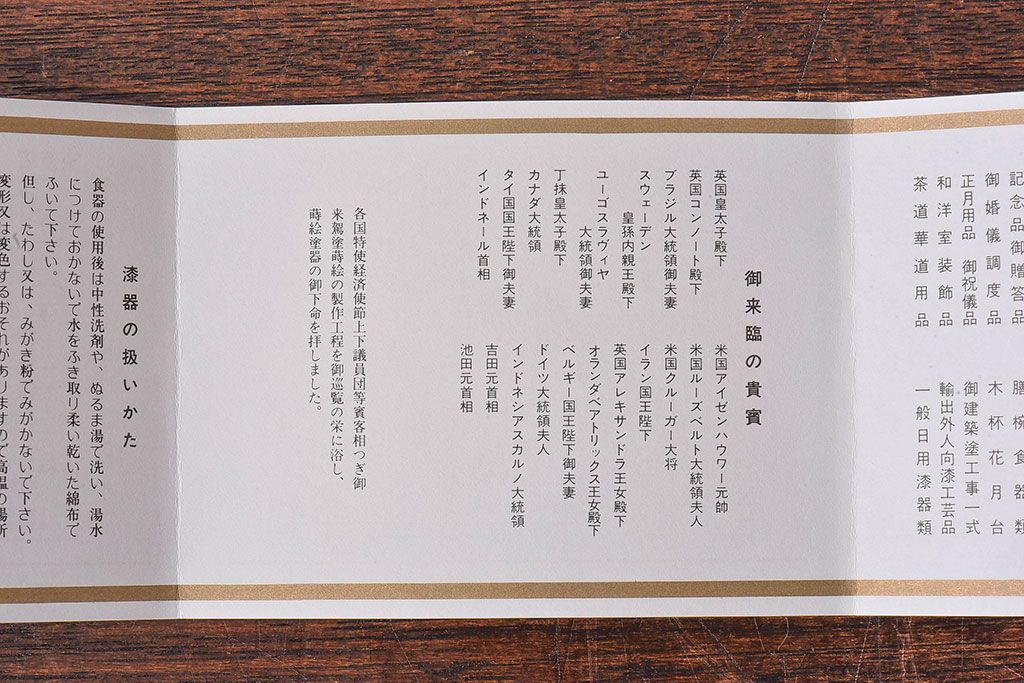 記念品御贈答品
御婚儀調度品
正月用品 御祝儀品
和洋室装飾品
茶道華道用品
膳椀食器類
木杯花月台
御建築塗工事一式
輸出外人向漆工芸品
一般日用漆器類
御来臨の貴賓
英国皇太子殿下
英国コンノート殿下
ブラジル大統領御夫妻
スウェーデン
皇孫内親王殿下
ユーゴスラヴィヤ
大統領御夫妻
丁抹皇太子殿下
カナダ大統領
タイ国国王陛下御夫妻
インドネール首相
米国アイゼンハウワー元帥
米国ルーズベルト大統領夫人
米国クルーガー大将
イラン国王陛下
英国アレキサンドラ王女殿下
オランダベアトリックス王女殿下
ベルギー国王陛下御夫妻
ドイツ大統領夫人
インドネシアスカルノ大統領
吉田元首相
池田元首相
各国特使経済使節上下議員団等賓客相つぎ御
来駕塗蒔絵の製作工程を御巡覧の栄に浴し、
蒔絵塗器の御下命を拝しました。
漆器の扱いかた
食器の使用後は中性洗剤や、ぬるま湯で洗い、湯水
につけておかないで水をふき取り柔い乾いた綿布て
ふいて下さい。
但し、たわし又は、みがき粉でみがかないで下さい。
変形又は変色するおそれがありますので高温の場所